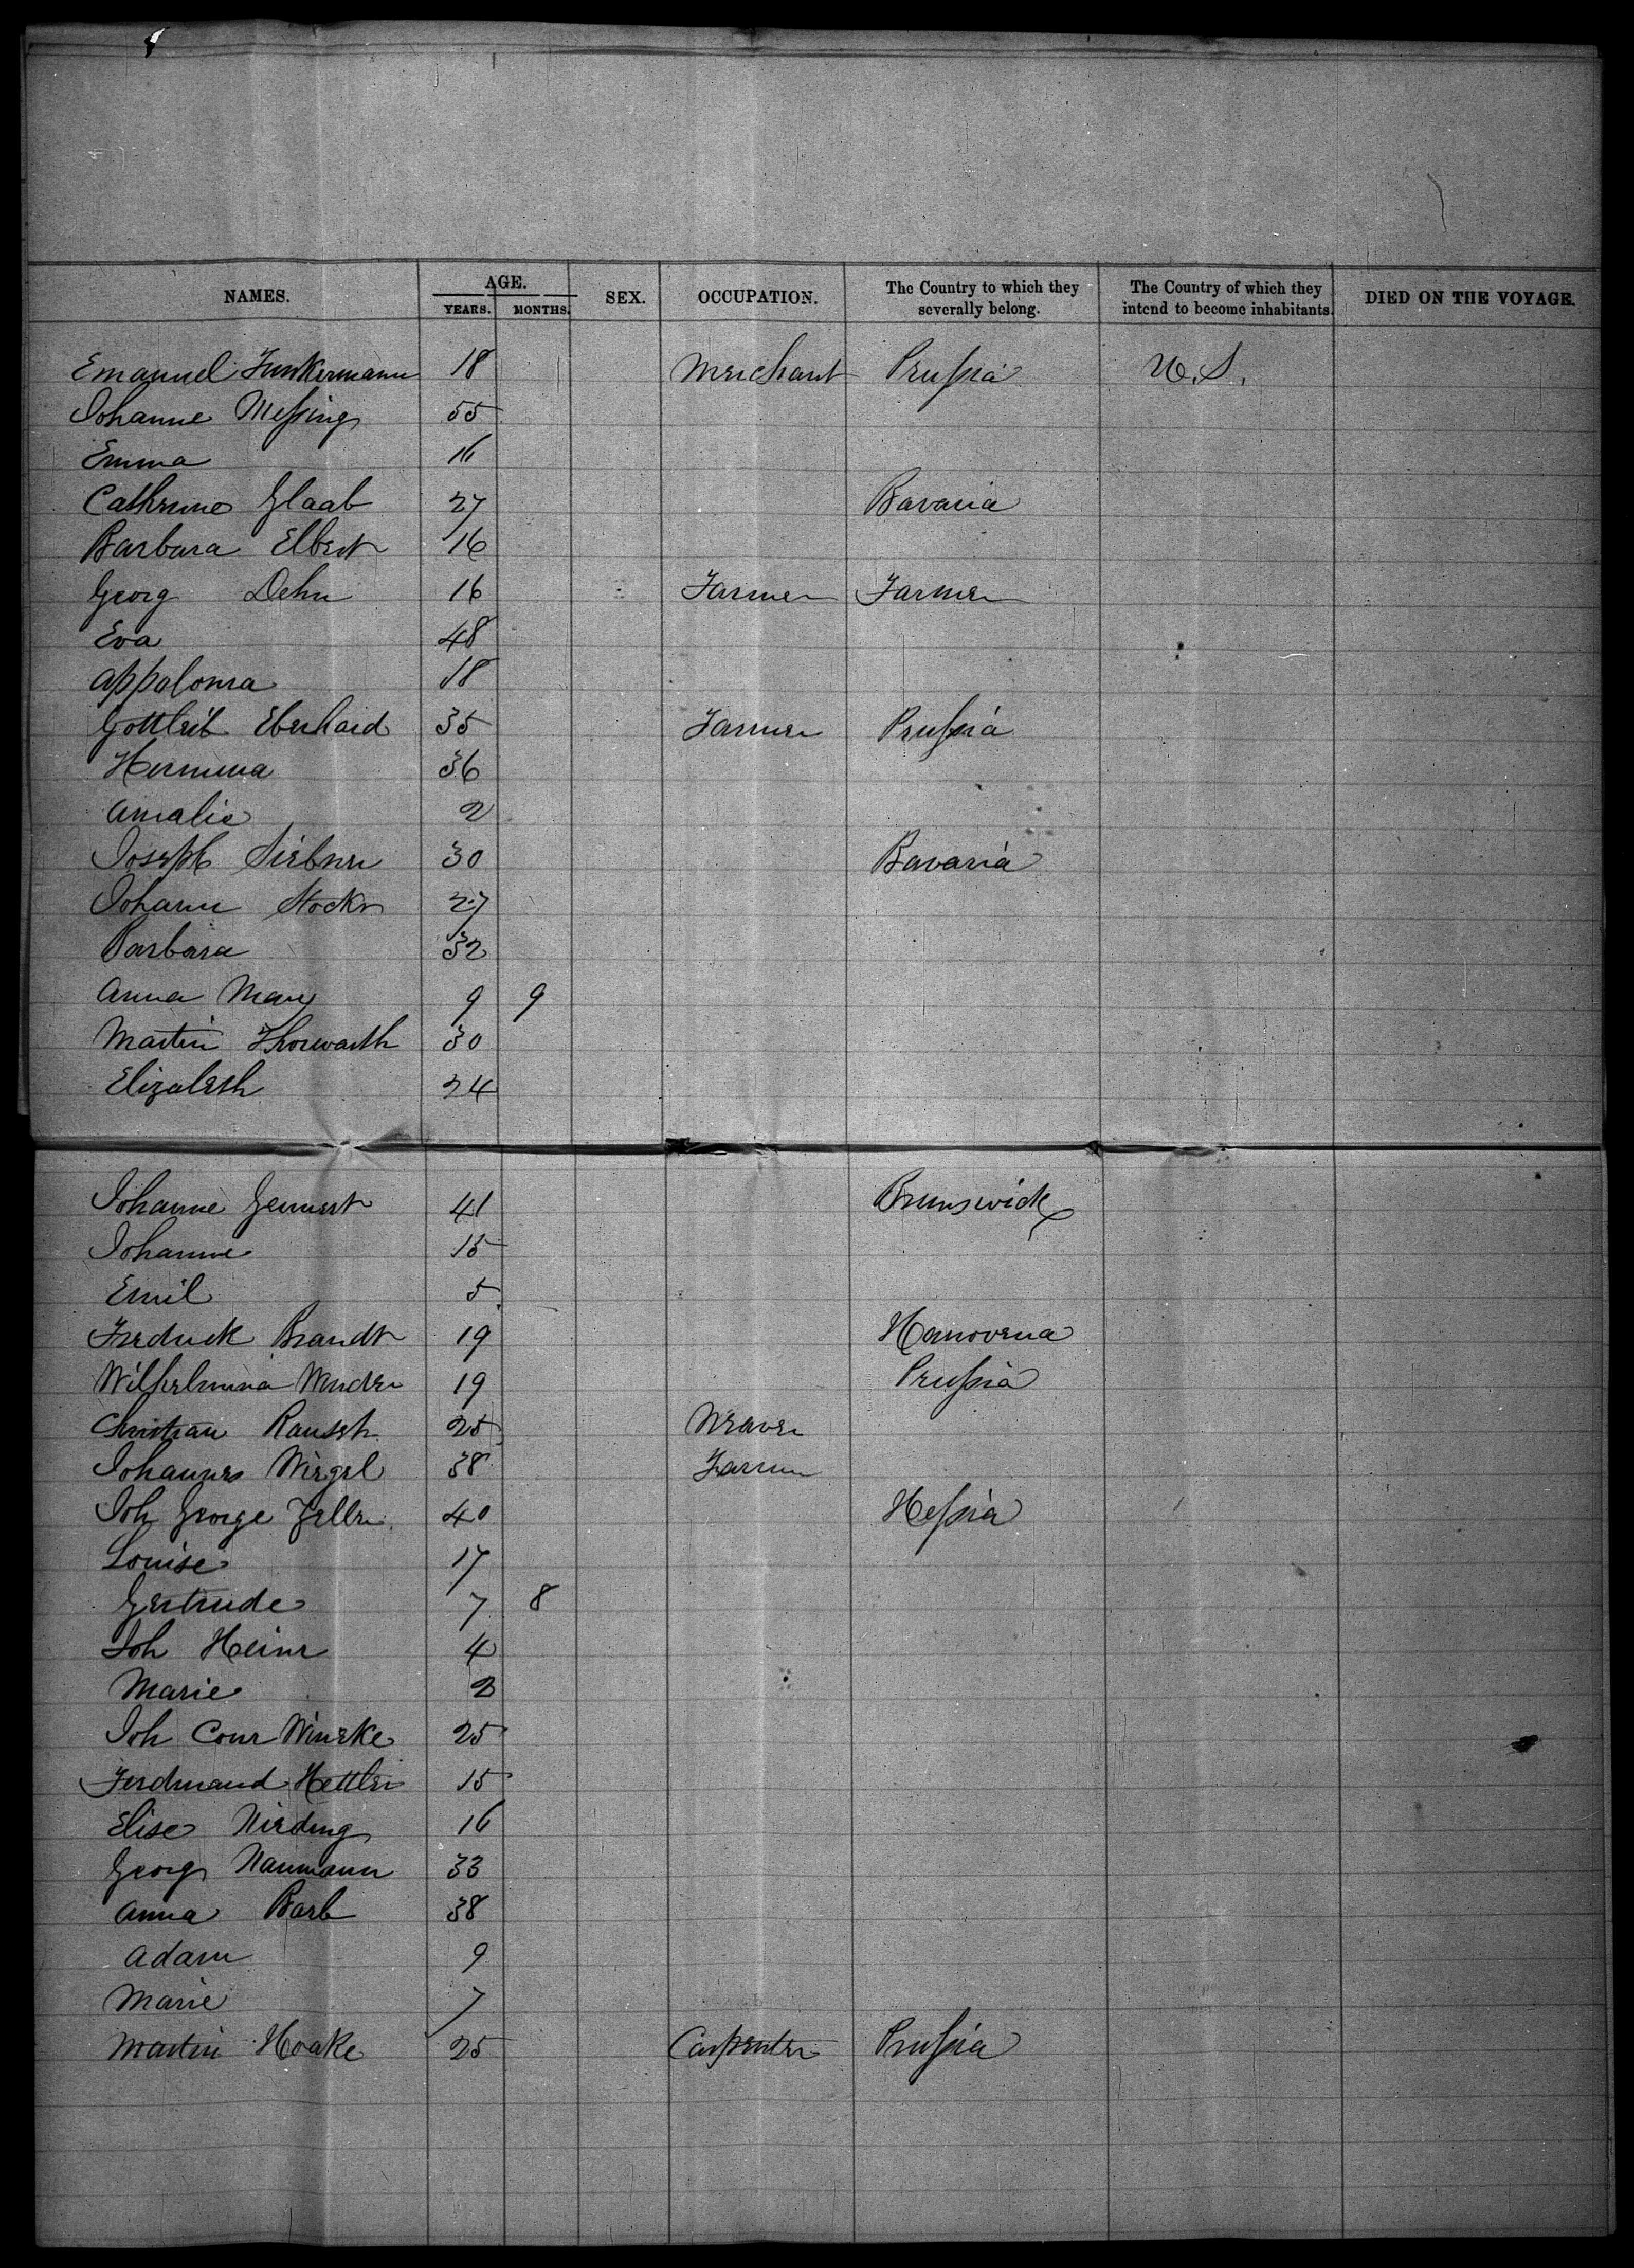 NAMES. AGE. SEX. OCCUPATION. The Country to which they severally belong. The Country of which they intend to become inhabitants. DIED ON THE VOYAGE.
YEARS. MONTHS.
Emanuel Funkermann 18 Merchant Prussia U.S.
Johanne Messing 55
Emma 16
Cathrine Glaab 27 Bavaria
Barbara Elbert 16
Georg Dehn 16 Farmer Farmer
Eva 48
Appalonia 18
Gottleib Eberhard 35 Farmer Prussia
Hermina 36
Amalie 2
Joseph Siebner 30 Bavaria
Johann Stocker 27
Barbara 32
Anna Mary 9 9
Martin Thorwarth 30
Elizabeth 24
Johanne Gennert 41 Brunswick
Johanne 15
Emil 5
Fredrick Brandt 19 Hanoveria
Wilhelmina 19 Prussia
Christian Rausch 25 Weaver
Johannes Wiegel 38 Farmer
Joh George Zeller 40 Hessia
Louise 17
Gertrude 7 8
Joh Heinr 4
Marie
Joh Conr Wineke 25
Ferdinand Hettler 15
Elise Nieding 16
Georg Naumann 33
Anna Barb 38
Adam 9
Marie 7
Martin Hoake 25 Carpenter Prussia